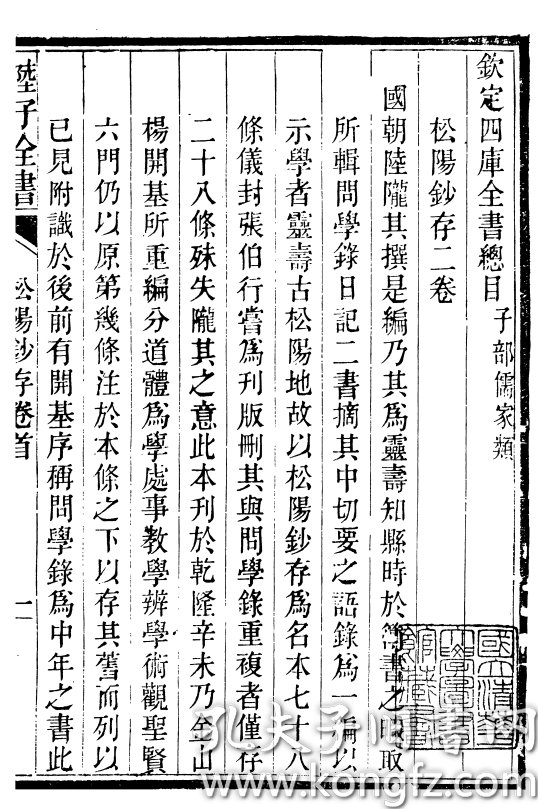 欽定四庫全書總目 子部儒家類
松陽鈔存二卷
國朝陸隴其撰是編乃其爲靈壽知縣時於簿書之暇取
所輯問學錄日記二書摘其中切要之語錄爲一編以
示學者靈壽古松陽地故以松陽鈔存爲名本七十八
條儀封張伯行嘗爲刊版刪其與問學錄重複者僅存
二十八條殊失隴其之意此本刊於乾隆辛未乃金山
楊開基所重編分道體爲學處事教學辨學術觀聖賢
六門仍以原第幾條注於本條之下以存其舊而列以
已見附識於後前有開基序稱問學錄爲中年之書此
陸子全書 松陽鈔存卷首 一
國立清華大學圖書館藏書
孔夫子旧书网
www.kongfz.com